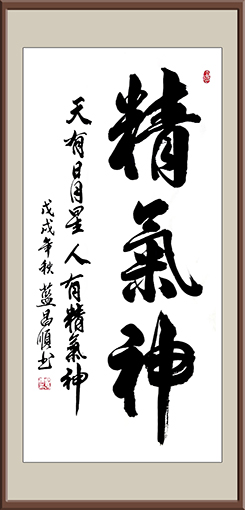 精氣神
天有日月星人有精氣神
戊戌年秋藍昌順书